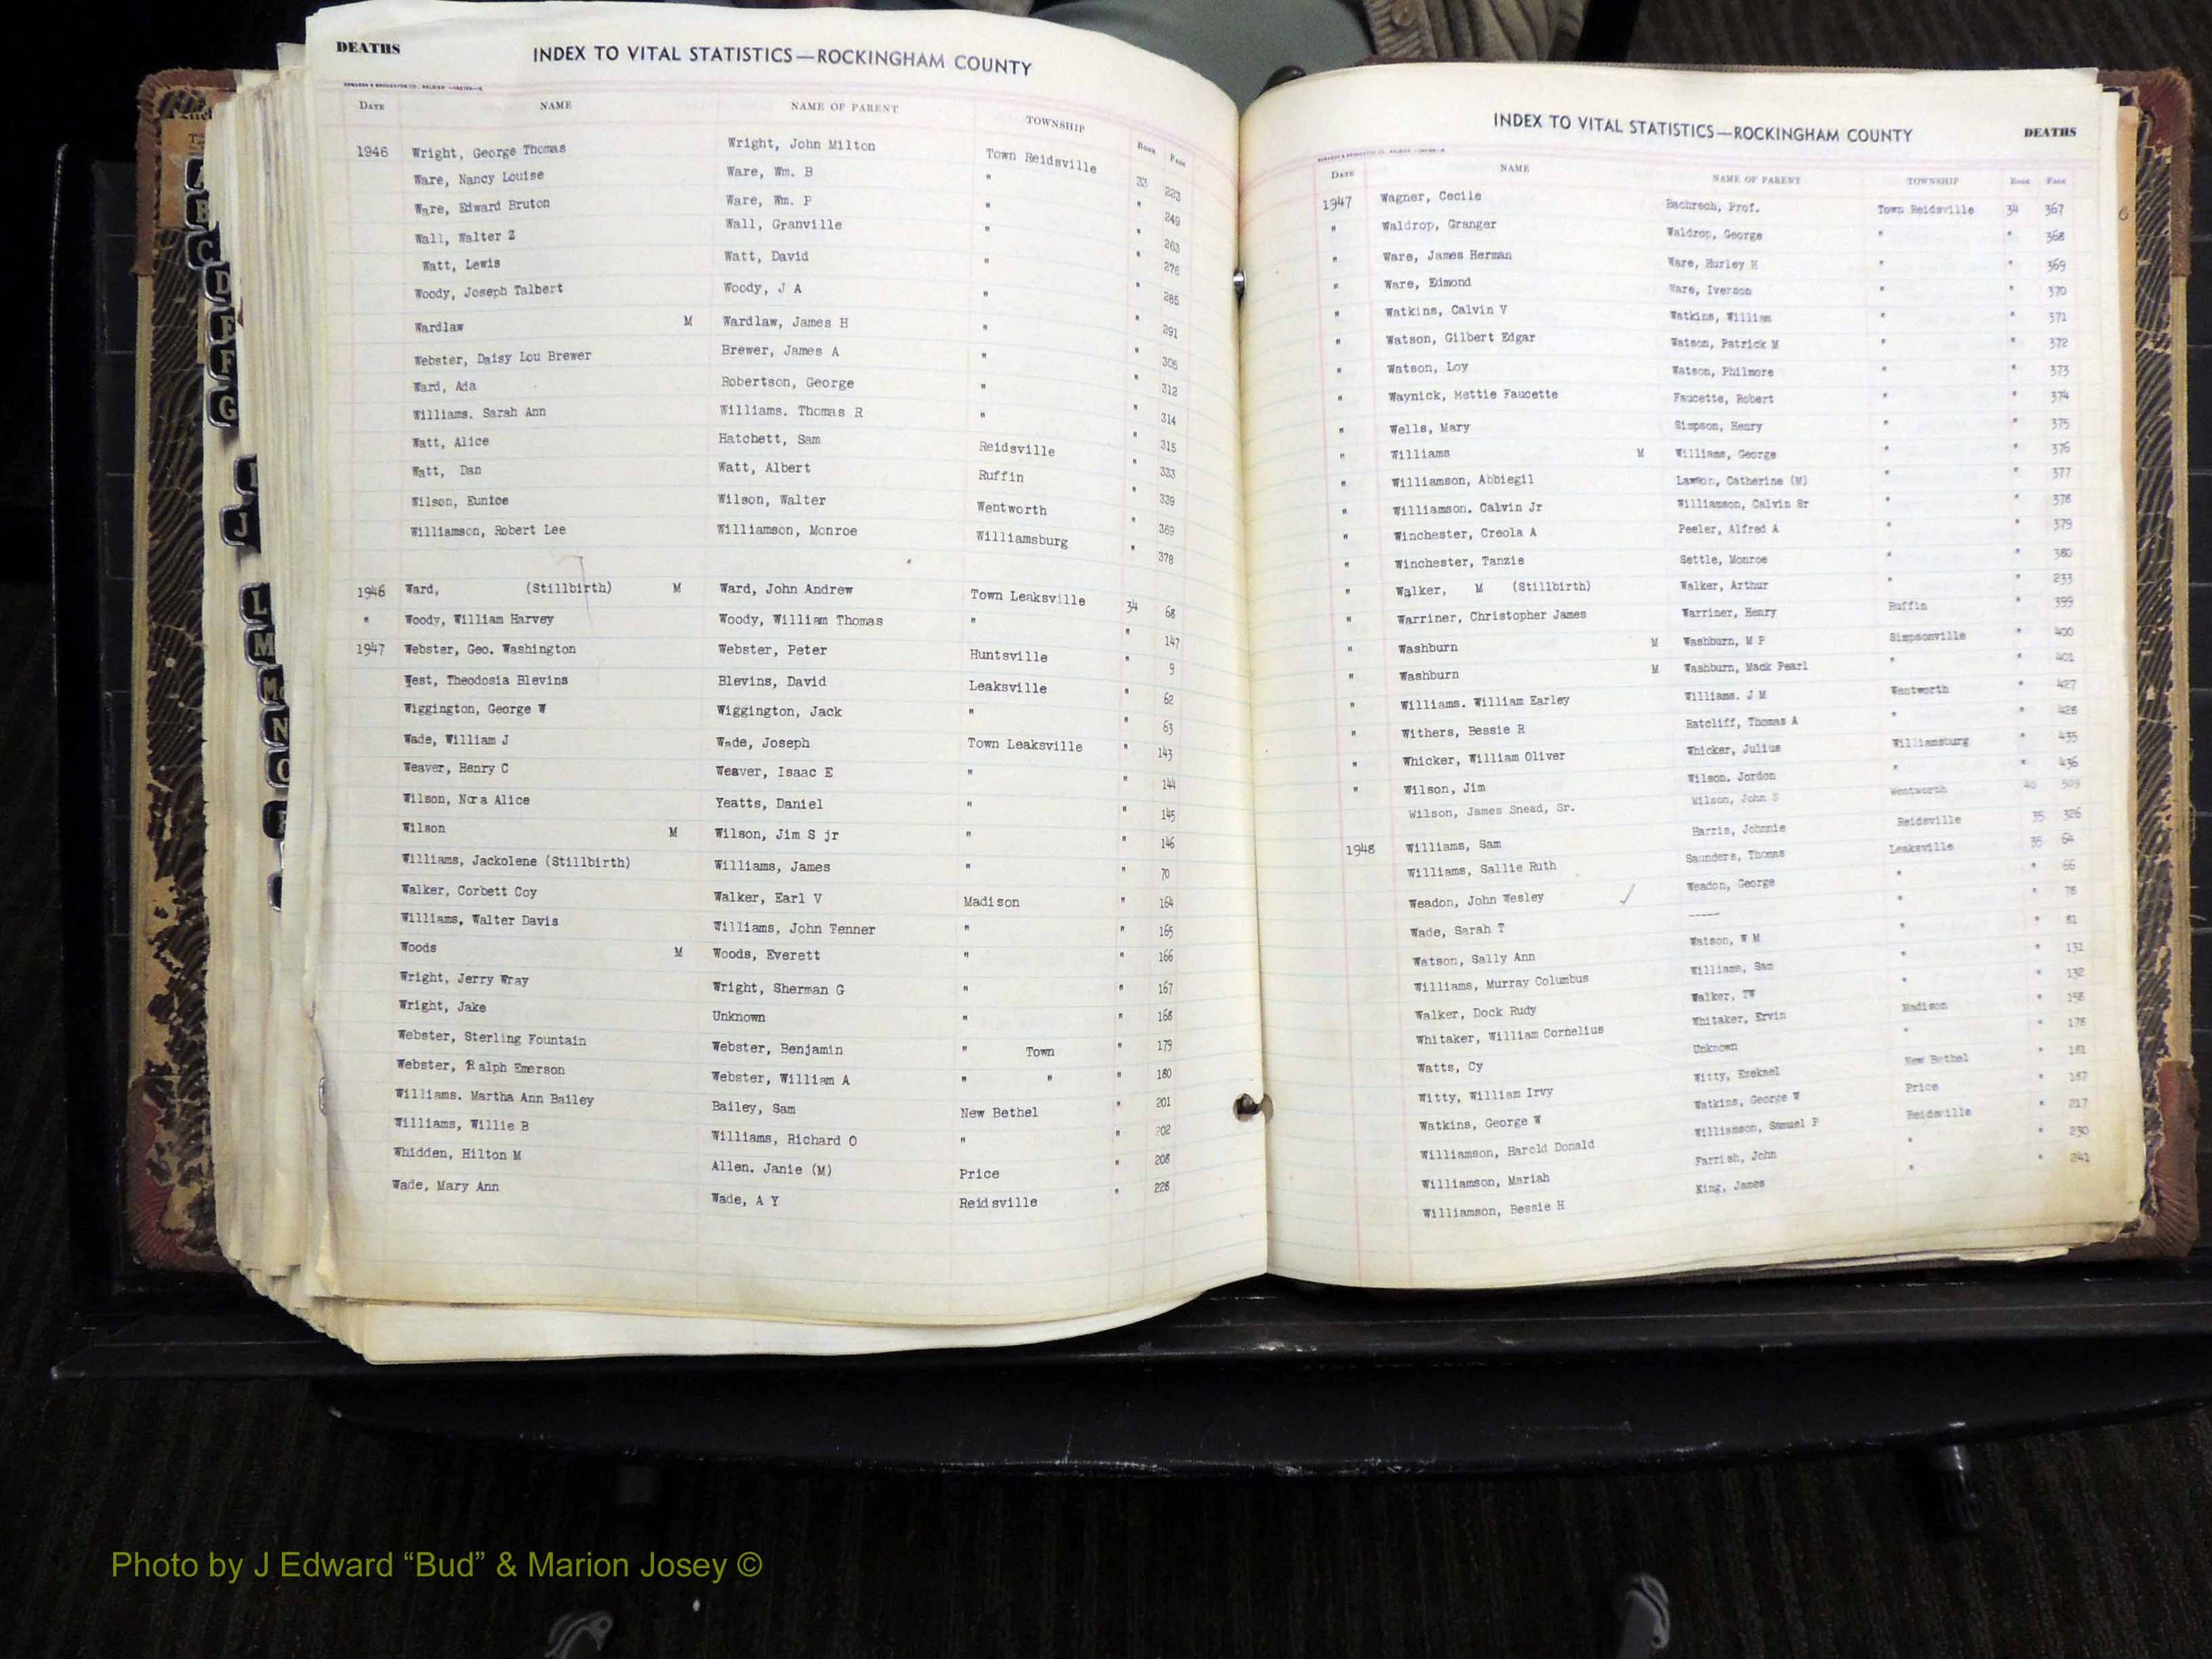 DEATHS
INDEX TO VITAL STATISTICS—ROCKINGHAM COUNTY
DATE NAME NAME OF PARENT TOWNSHIP Book Page
1946 Wright, George Thomas Wright, John Milton Town Reidsville 33 223
Ware, Nancy Louise Ware, Wm. B " " 249
Ware, Edward Bruton Ware, Wm. P " " 263
Wall, Walter Z Wall, Granville " " 276
Watt, Lewis Watt, David " " 285
Woody, Joseph Talbert Woody, J A " " 291
Wardlaw M Wardlaw, James H " " 306
Webster, Daisy Lou Brewer Brewer, James A " " 312
Ward, Ada Robertson, George " " 314
Williams. Sarah Ann Williams. Thomas R " " 315
Watt, Alice Hatchett, Sam Reidsville " 333
Watt, Dan Watt, Albert Ruffin " 339
Wilson, Eunice Wilson, Walter Wentworth " 369
Williamson, Robert Lee Williamson, Monroe Williamsburg " 378
1946 Ward, (Stillbirth) M Ward, John Andrew Town Leaksville 34 68
" Woody, William Harvey Woody, William Thomas " " 147
1947 Webster, Geo. Washington Webster, Peter Huntsville " 9
West, Theodosia Blevins Blevins, David Leaksville " 62
Wiggington, George W Wiggington, Jack " " 63
Wade, William J Wade, Joseph Town Leaksville " 143
Weaver, Henry C Weaver, Isaac E " " 144
Wilson, Nora Alice Yeatts, Daniel " " 145
Wilson M Wilson, Jim S jr " " 146
Williams, Jackolene (Stillbirth) Williams, James " " 70
Walker, Corbett Coy Walker, Earl V Madison " 164
Williams, Walter Davis Williams, John Tenner " " 165
Woods M Woods, Everett " " 166
Wright, Jerry Wray Wright, Sherman G " " 167
Wright, Jake Unknown " " 168
Webster, Sterling Fountain Webster, Benjamin " Town " 179
Webster, Ralph Emerson Webster, William A " " " 180
Williams. Martha Ann Bailey Bailey, Sam New Bethel " 201
Williams, Willie B Williams, Richard O " " 202
Whidden, Hilton M Allen. Janie (M) Price " 208
Wade, Mary Ann Wade, A Y Reidsville " 228
INDEX TO VITAL STATISTICS—ROCKINGHAM COUNTY
DEATHS
DATE NAME NAME OF PARENT TOWNSHIP Book Page
1947 Wagner, Cecile Bachrach, Prof. Town Reidsville 34 367
" Waldrop, Granger Waldrop, George " " 368
" Ware, James Herman Ware, Hurley H " " 369
" Ware, Edmond Ware, Iverson " " 370
" Watkins, Calvin V Watkins, William " " 371
" Watson, Gilbert Edgar Watson, Patrick M " " 372
" Watson, Loy Watson, Philmore " " 373
" Waynick, Mettie Faucette Faucette, Robert " " 374
" Wells, Mary Simpson, Henry " " 375
" Williams M Williams, George " " 376
" Williamson, Abbiegil Lawson, Catherine (M) " " 377
" Williamson. Calvin Jr Williamson, Calvin Sr " " 378
" Winchester, Creola A Peeler, Alfred A " " 379
" Winchester, Tanzie Settle, Monroe " " 380
" Walker, M (Stillbirth) Walker, Arthur " " 233
" Warriner, Christopher James Warriner, Henry Ruffin " 399
" Washburn M Washburn, M P Simpsonville " 400
" Washburn M Washburn, Mack Pearl " " 401
" Williams. William Earley Williams. J M Wentworth " 427
" Withers, Bessie R Ratcliff, Thomas A " " 428
" Whicker, William Oliver Whicker, Julius Williamsburg " 435
" Wilson, Jim Wilson. Jordon " " 436
Wilson, James Snead, Sr. Wilson, John S Wentworth 40 509
1948 Williams, Sam Harris, Johnnie Reidsville 35 326
Williams, Sallie Ruth Saunders, Thomas Leaksville 35 64
Weadon, John Wesley Weadon, George " " 66
Wade, Sarah T ----- " " 78
Watson, Sally Ann Watson, W M " " 81
Williams, Murray Columbus Williams, Sam " " 131
Walker, Dock Rudy Walker, TW " " 132
Whitaker, William Cornelius Whitaker, Ervin Madison " 158
Watts, Cy Unknown " " 176
Witty, William Irvy Witty, Ezekael New Bethel " 181
Watkins, George W Watkins, George W Price " 187
Williamson, Harold Donald Williamson, Samuel P Reidsville " 217
Williamson, Mariah Farrish, John " " 230
Williamson, Bessie H King, James " " 241
A
B
C
D
E
F
G
J
L
M
Mc
N
O
Photo by J Edward “Bud” & Marion Josey ©